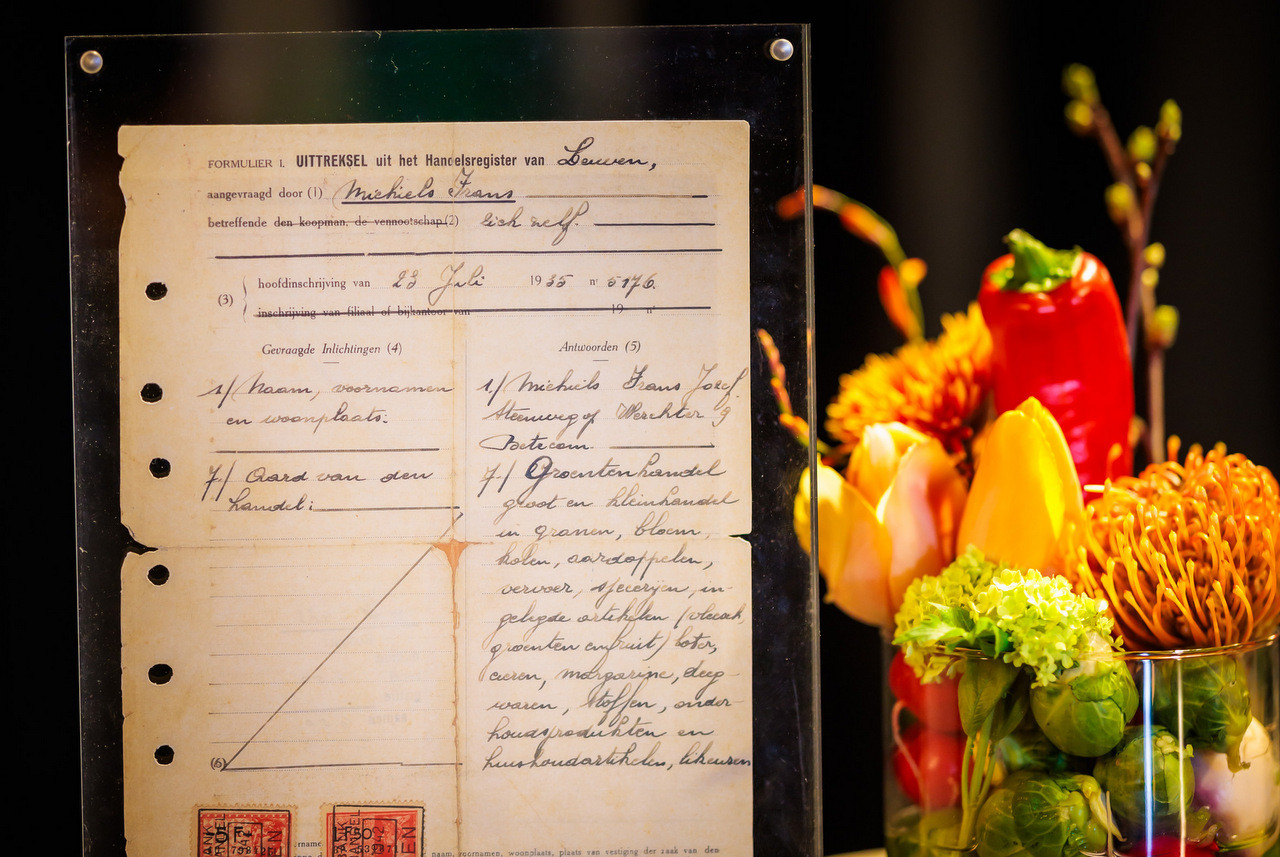 FORMULIER I. UITTREKSEL uit het Handelsregister van Leuven,
aangevraagd door (1) Michiels Frans
betreffende den koopman, de vennootschap (2) zich zelf.
(3) hoofdinschrijving van 23 Juli 1935 nr 5176.
inschrijving van filiaal of bijkantoor van 19 nr
Gevraagde Inlichtingen (4)
1/ Naam, voornamen
en woonplaats:
7/ Aard van den
handel:
(6)
Antwoorden (5)
1/ Michiels Frans Jozef
Steenweg op Werchter 9
Betecom.
7/ Groentenhandel
groot en kleinhandel
in granen, bloem,
kolen, aardappelen,
vervoer, specerijen, in-
gelegde artikelen (vleesch,
groenten en fruit) boter,
eieren, margarine, deeg-
waren, stoffen, onder-
houdsprodukten en
huishoudartikelen, likeuren
naam, voornamen, woonplaats, plaats van vestiging der zaak van den